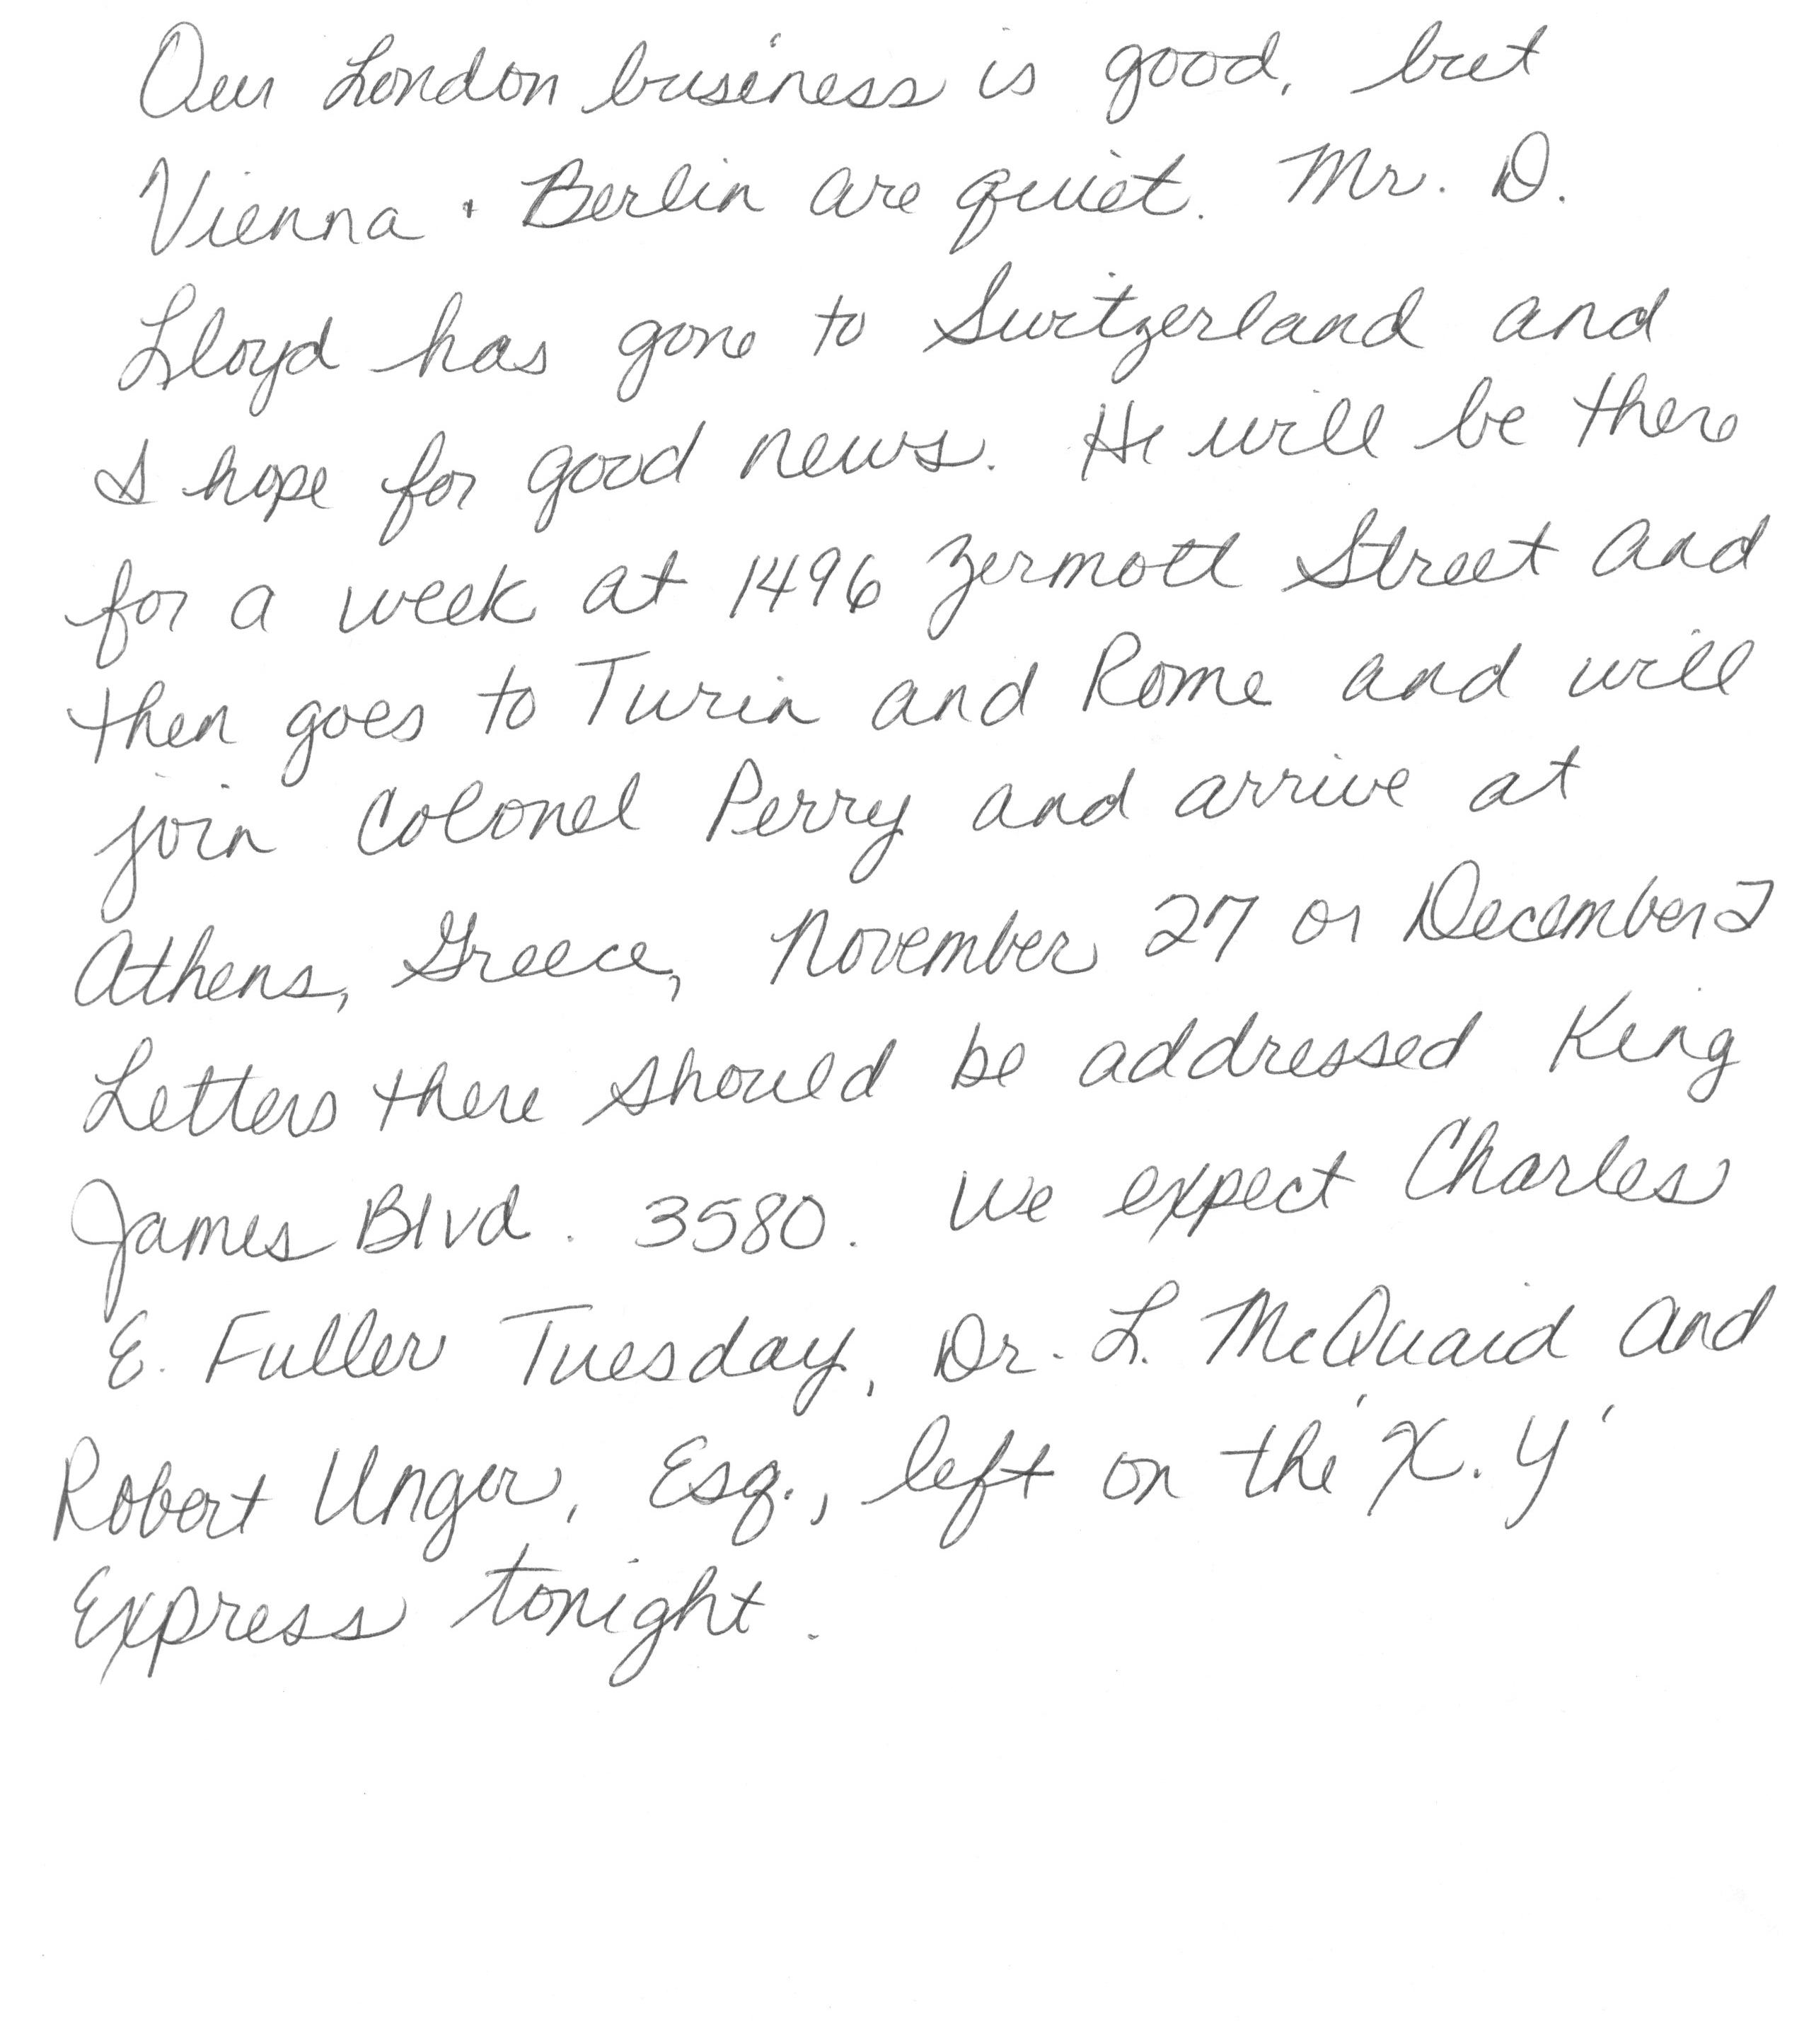 Our London business is good, but
Vienna + Berlin are quiet. Mr. D.
Lloyd has gone to Switzerland and
I hope for good news. He will be there
for a week at 1496 Zermott Street and
then goes to Turin and Rome and will
join Colonel Perry and arrive at
Athens, Greece, November 27 or December 2
Letters there should be addressed King
James Blvd. 3580. We expect Charles
E. Fuller Tuesday, Dr. L. McQuaid and
Robert Unger, Esq., left on the 'X.Y'
Express tonight.